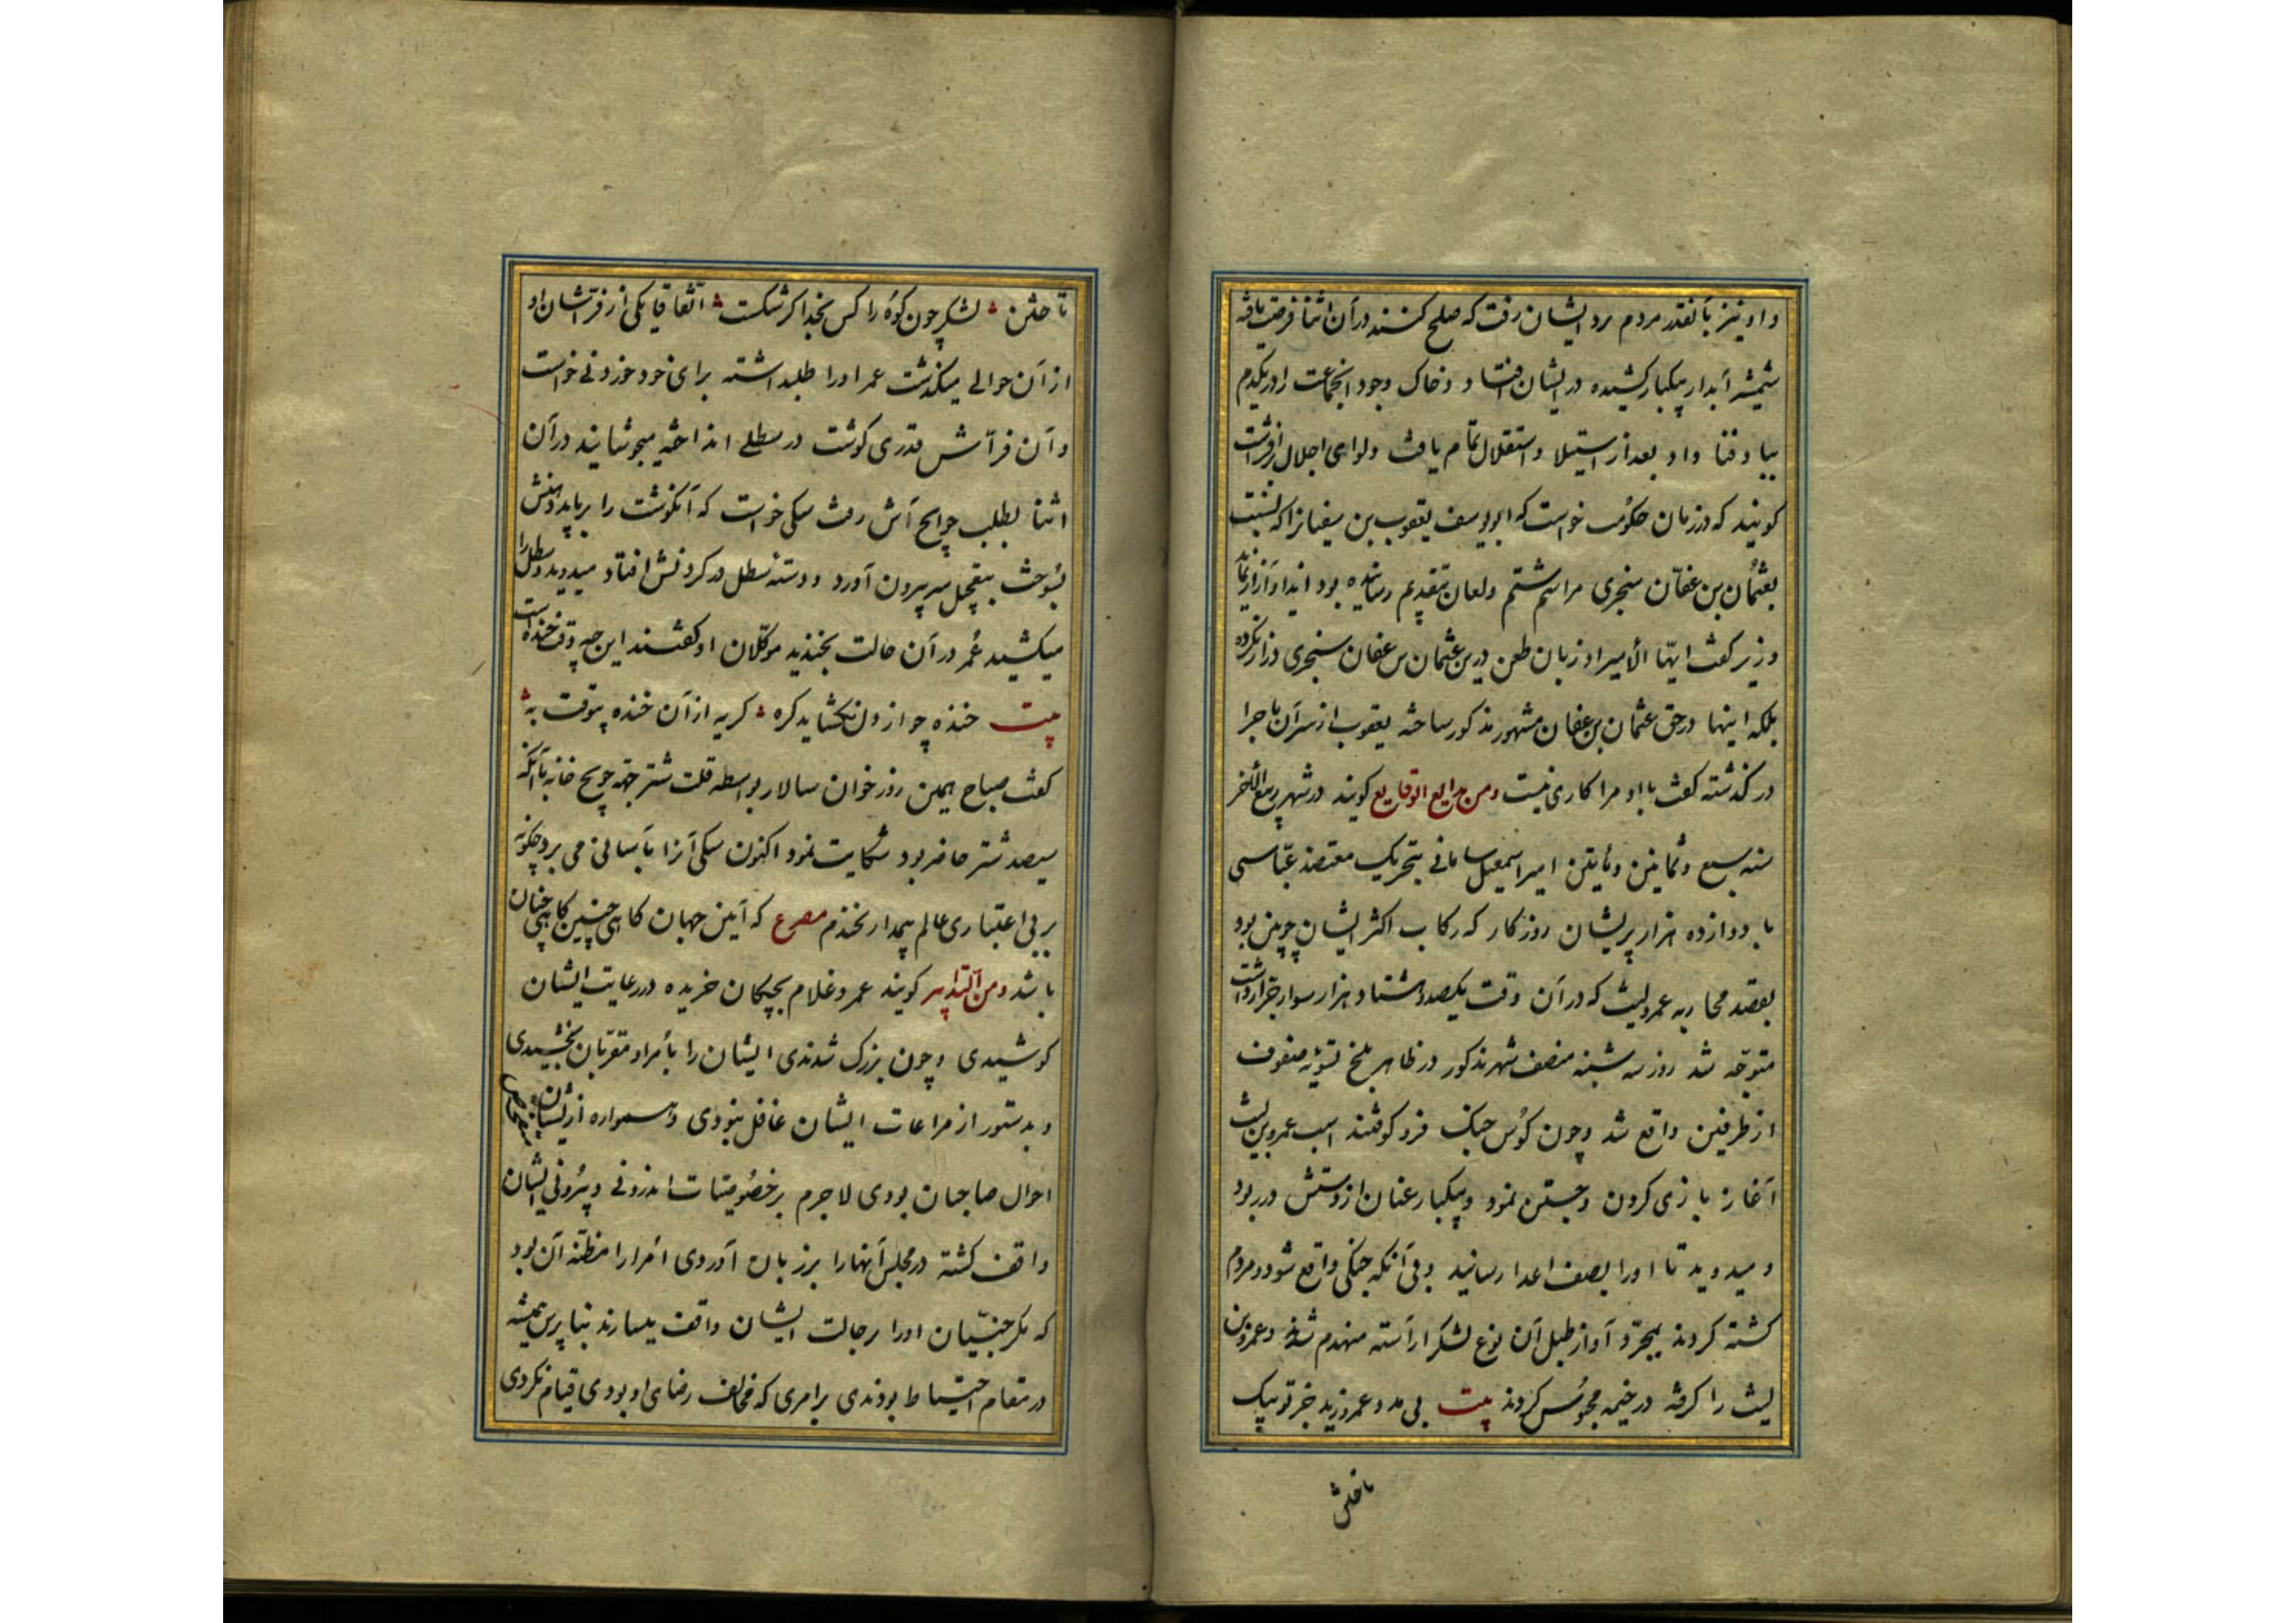 و او نیز بآنقدر مردم برد ایشان رفت که صلح کنند در آن اثنا فرصت یافته
شمشیر آبدار بیکبار کشیده در ایشان افتاد و خاک وجود انجماعت را در یکدم
بباد فنا داد بعد از استیلا و استقلال تمام یافت ولوای اجلال افراشت
کویند که در زمان حکومت خواست که ابویوسف یعقوب بن سفیانرا که نسبت
بعثمان بن عفان سنجری مراسم شتم ولعان بتقدیم رسانیده بود ایذا و آزار نماید
وزیر کفت ایها الأمیر او زبان طعن در بن عثمان بن عفان سنجری دراز نکرده
بلکه اینها در حق عثمان بن عفان مشهور مذکور ساخته یعقوب از سر آن ماجرا
در کذشته کفت با او مرا کاری نیست ومن بدایع الوقایع کویند در شهر ربیع الآخر
سنه سبع وثمانین ومأیتین امیر اسمعیل سامانی بتحریک معتضد عباسی
با دوازده هزار پریشان روزکار که رکاب اکثر ایشان چوبین بود
بقصد محاربه عمرولیث که در آن وقت یکصد وهشتاد هزار سوار جرار داشت
متوجه شد روز سه شنبه منصف شهر مذکور در ظاهر بلخ تسویه صفوف
از طرفین واقع شد وچون کوس جنک فرو کوفتند اسب عمرو بن لیث
آغاز بازی کردن وجستن نمود وبیکبار عنان از دستش در ربود
و میدوید تا اورا بصف اعدا رسانید وبی آنکه جنکی واقع شود ومردم
کشته کردند بمجرد آواز طبل آن نوع لشکر آراسته منهدم شدند وعمرو بن
لیث را کرفته در خیمه محبوس کردند بیت بی مدد عمرو زید خر تو بیک
تاختن
تاختن لشکر چون کوه را کس بخدا کر شکست اتفاقا یکی از فراشان او
از آن حوالی میکذشت عمر اورا طلبداشته برای خود خوردنی خواست
و آن فراش قدری کوشت در سطلی انداخته میجوشانید در آن
اثنا بطلب حوایج آش رفت سکی خواست که آنکوشت را برباید دهنش
بسوخت بتعجیل سر بیرون آورد ودسته سطل در کردنش افتاد میدوید وسطل را
میکشید عمر در آن حالت بخندید موکلان او کفتند این چه وقت خنده است
بیت خنده چو از دل نکشاید کره کریه از آن خنده بیوقت به
کفت صباح همین روز خوان سالار بواسطه قلت شتر جهة حوایج خانه با آنکه
سیصد شتر حاضر بود شکایت نمود اکنون سکی آنرا بآسانی می برد چکونه
بر بی اعتباری عالم بیمدار نخندم مصرع که آیین جهان کاهی چنین کاهی چنان
باشد ومن التدابیر کویند عمرو غلام بچکان خریده در رعایت ایشان
کوشیدی وچون بزرک شدندی ایشان را بأمرا ومقربان بخشیدی
وبدستور از مراعات ایشان غافل نبودی وهمواره از ایشان
احوال صاحبان بودی لاجرم بر خصوصیات اندرونی وبیرونی ایشان
واقف کشته در مجلس آنها را بر زبان آوردی امرا را مظنه آن بود
که مکر جنیان اورا بر حالت ایشان واقف میسازند بنا برین همیشه
در مقام احتیاط بودندی بر امری که مخالف رضای او بودی قیام نکردی